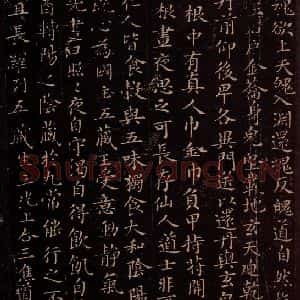 魂欲上天魄入淵還魂反魄道自然
載地玄天迴乾
丹前仰後卑各異門送以還丹與玄
根中有真人巾金巾負甲持符開
根晝夜思之可長存仙人道士非
人皆食穀與五味獨食大和陰陽
心為國主五藏王受意動靜氣
晝日照照夜自守渴自得飲飢自
酉轉陽之陰藏於九常能行之不
且長羅列五藏生三光上合三焦道
Shufawang.CN